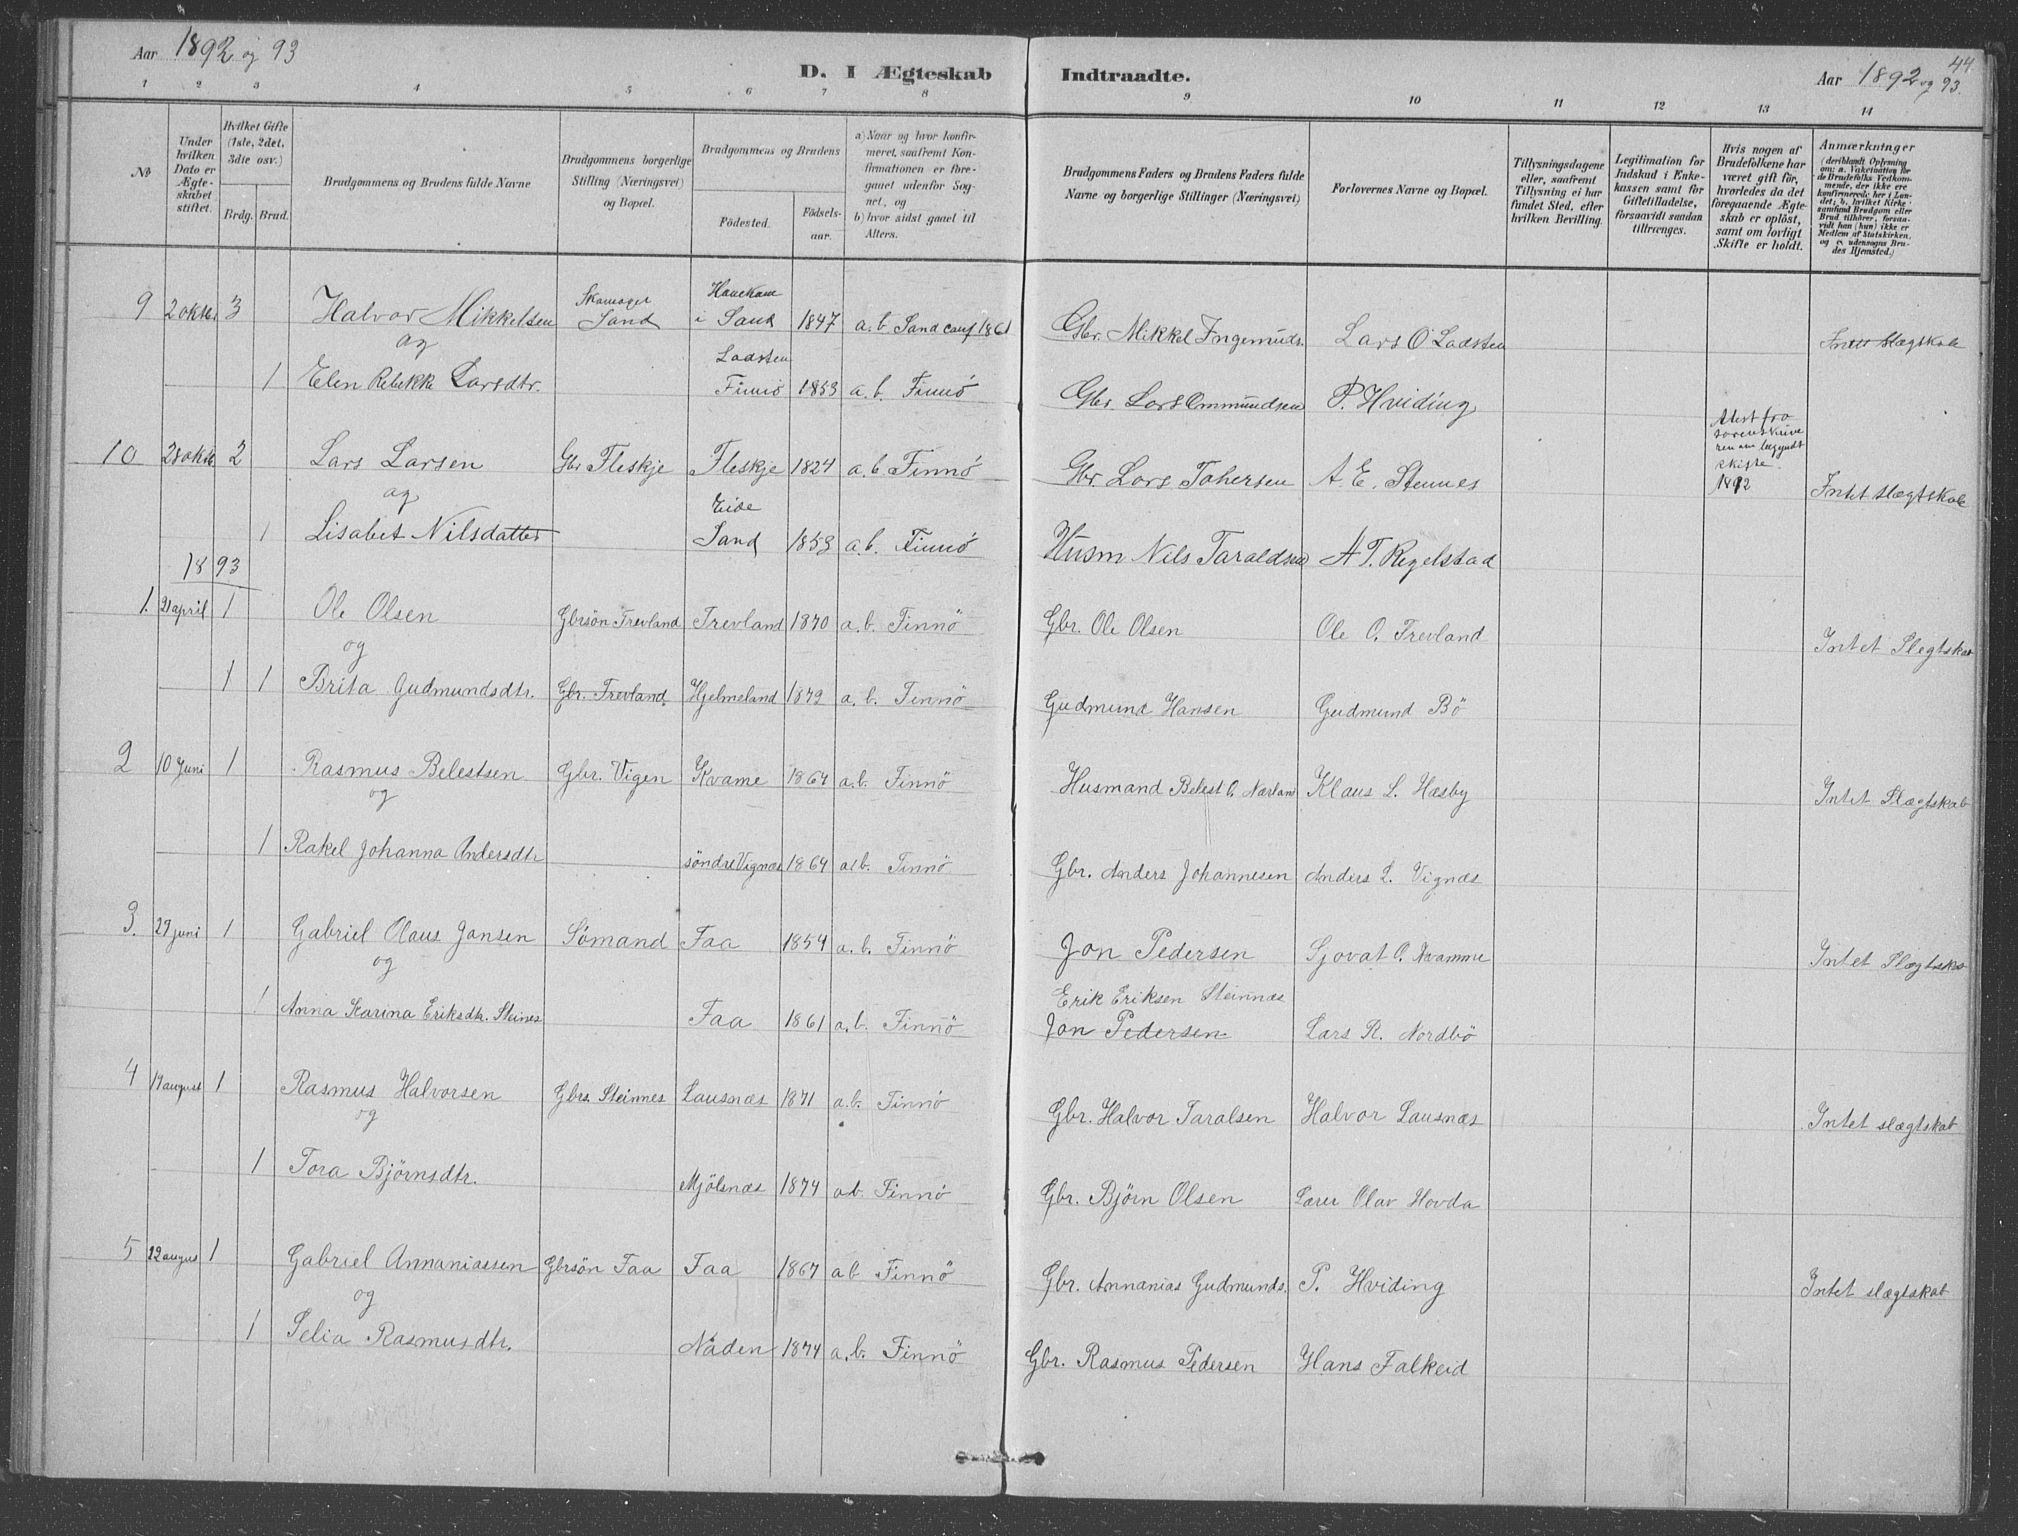 Aar 1892 og 93
D. I Ægteskab Indtraadte.
Aar 1892 og 93.
44
1 2 3 4 5 6 7 8 9 10 11 12 13 14
No
Under hvilken Dato er Ægteskabet stiftet.
Hvilket Gifte (1ste, 2det, 3die osv.)
Brdg. Brud.
Brudgommens og Brudens fulde Navne
Brudgommens borgerlige Stilling (Næringsvei) og Bopæl.
Brudgommens og Brudens
Födested.
Födselsaar.
a) Naar og hvor konfirmeret, saafremt Konfirmationen er foregaaet udenfor Sognet, og
b) hvor sidst gaaet til Alters.
Brudgommens Faders og Brudens Faders fulde Navne og borgerlige Stillinger (Næringsvei)
Forlovernes Navne og Bopæl.
Tillysningsdagene eller, saafremt Tillysning ei har fundet Sted, efter hvilken Bevilling.
Legitimation for Indskud i Enkekassen samt for Giftetilladelse, forsaavidt saadan tiltrænges.
Hvis nogen af Brudefolkene har været gift för, hvorledes da det foregaaende Ægteskab er oplöst, samt om lovligt Skifte er holdt.
Anmærkninger (deriblandt Oplysning om: a. Vakcination for de Brudefolks Vedkommende, der ikke ere konfirmerede her i Landet; b. hvilket Kirkesamfund Brudgom eller Brud tilhörer, forsaavidt han (hun) ikke er Medlem af Statskirken, og c. udensogns Brudes Hjemsted.)
9 2 okt. 3 Halvor Mikkelsen Sand i Sand 1847 a. b. Sand conf 1861 Gbr. Mikkel Ingemunds. Lars O Ladsten Intet slægtskab
og
1 Elen Rebekke Larsdtr. Ladsten Finnö 1853 a. b. Finnö Gbr. Lars Ommundsen P. Hviding
10 28 okt. 2 Lars Larsen Gbr Fleskje Fleskje 1824 a. b. Finnö Gbr. Lars Tohersen A. E. Stennes Attest fra sorenskriveren skifte 1892 Intet slægtskab
og
1 Lisabet Nilsdatter Eide Sand 1853 a. b. Finnö Husm Nils Taraldsen A T. Regelstad
1893
1. 21 april 1 Ole Olsen Gbrsön Trevland Trevland 1870 a. b. Finnö Gbr. Ole Olsen Ole O. Trevland Intet Slegtskab
og
1 1 Brita Gudmundsdtr. Gbr. Trevland. Hjelmeland 1872 a. b. Finnö Gudmund Hansen Gudmund Bö
2 10 Juni 1 Rasmus Belestsen Gbr. Vigen Kvame 1864 a. b. Finnö Husmand Belest O. Nærland Klaus L. Hæsby Intet Slægtskab
og
1 Rakel Johanna Andersdtr söndre Vignæs 1864 a. b. Finnö Gbr. Anders Johannesen Anders L. Vignæs
3. 29 juni 1 Gabriel Olaus Jonsen Sömand Faa 1854 a. b. Finnö Jon Pedersen Sjovat O. Kvamme Intet Slægtskab
og
1 Anna Karina Eriksdtr. Steines Faa 1861 a. b. Finnö Erik Eriksen Steinnæs Jon Pedersen Lars R. Nordbö
4 19 august 1 Rasmus Halvorsen Gbrs. Steinnes Lausnæs 1871 a. b. Finnö Gbr. Halvor Taralsen Halvor Lausnæs Intet slægtskab
og
1 Tora Björnsdtr. Mjölsnæs 1874 a. b. Finnö Gbr. Björn Olsen Lærer Olav Hovda
5 22 augus 1 Gabriel Annaniassen Gbrsön Faa Faa 1867 a b Finnö Gbr. Annanias Gudmunds. P. Hviding Intet slægtskab
og
1 Selia Rasmusdtr. Nåden 1874 a. b. Finnö Gbr. Rasmus Pedersen Hans Falkeid